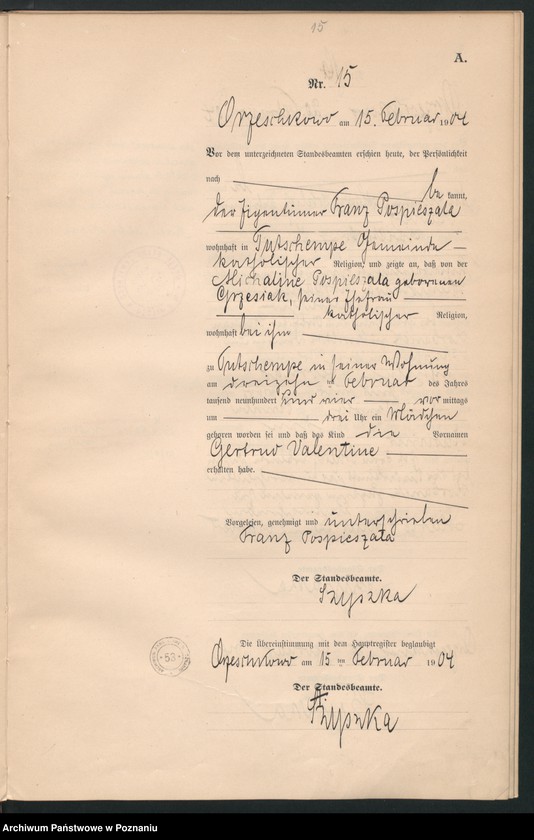 15
A.
Nr. 15
Orzeschkowo am 15. Februar 1904
Vor dem unterzeichneten Standesbeamten erschien heute, der Persönlichkeit
nach
be kannt,
der Eigentümer Franz Pospieszala
wohnhaft in Tutschempe Gemeinde
katholischer Religion, und zeigte an, daß von der
Michaline Pospieszala geborenen
Grzesiak, seiner Ehefrau
katholischer Religion,
wohnhaft bei ihm
zu Tutschempe in seiner Wohnung
am dreizehn ten Februar des Jahres
tausend neunhundert und vier vor mittags
um drei Uhr ein Mädchen
geboren worden sei und daß das Kind die Vornamen
Gertrud Valentine
erhalten habe.
Vorgelesen, genehmigt und unterschrieben
Franz Pospieszala
Der Standesbeamte.
Szyszka
Die Übereinstimmung mit dem Hauptregister beglaubigt
Orzeschkowo am 15 ten Februar 1904
Der Standesbeamte.
Szyszka
53
Archiwum Państwowe w Poznaniu